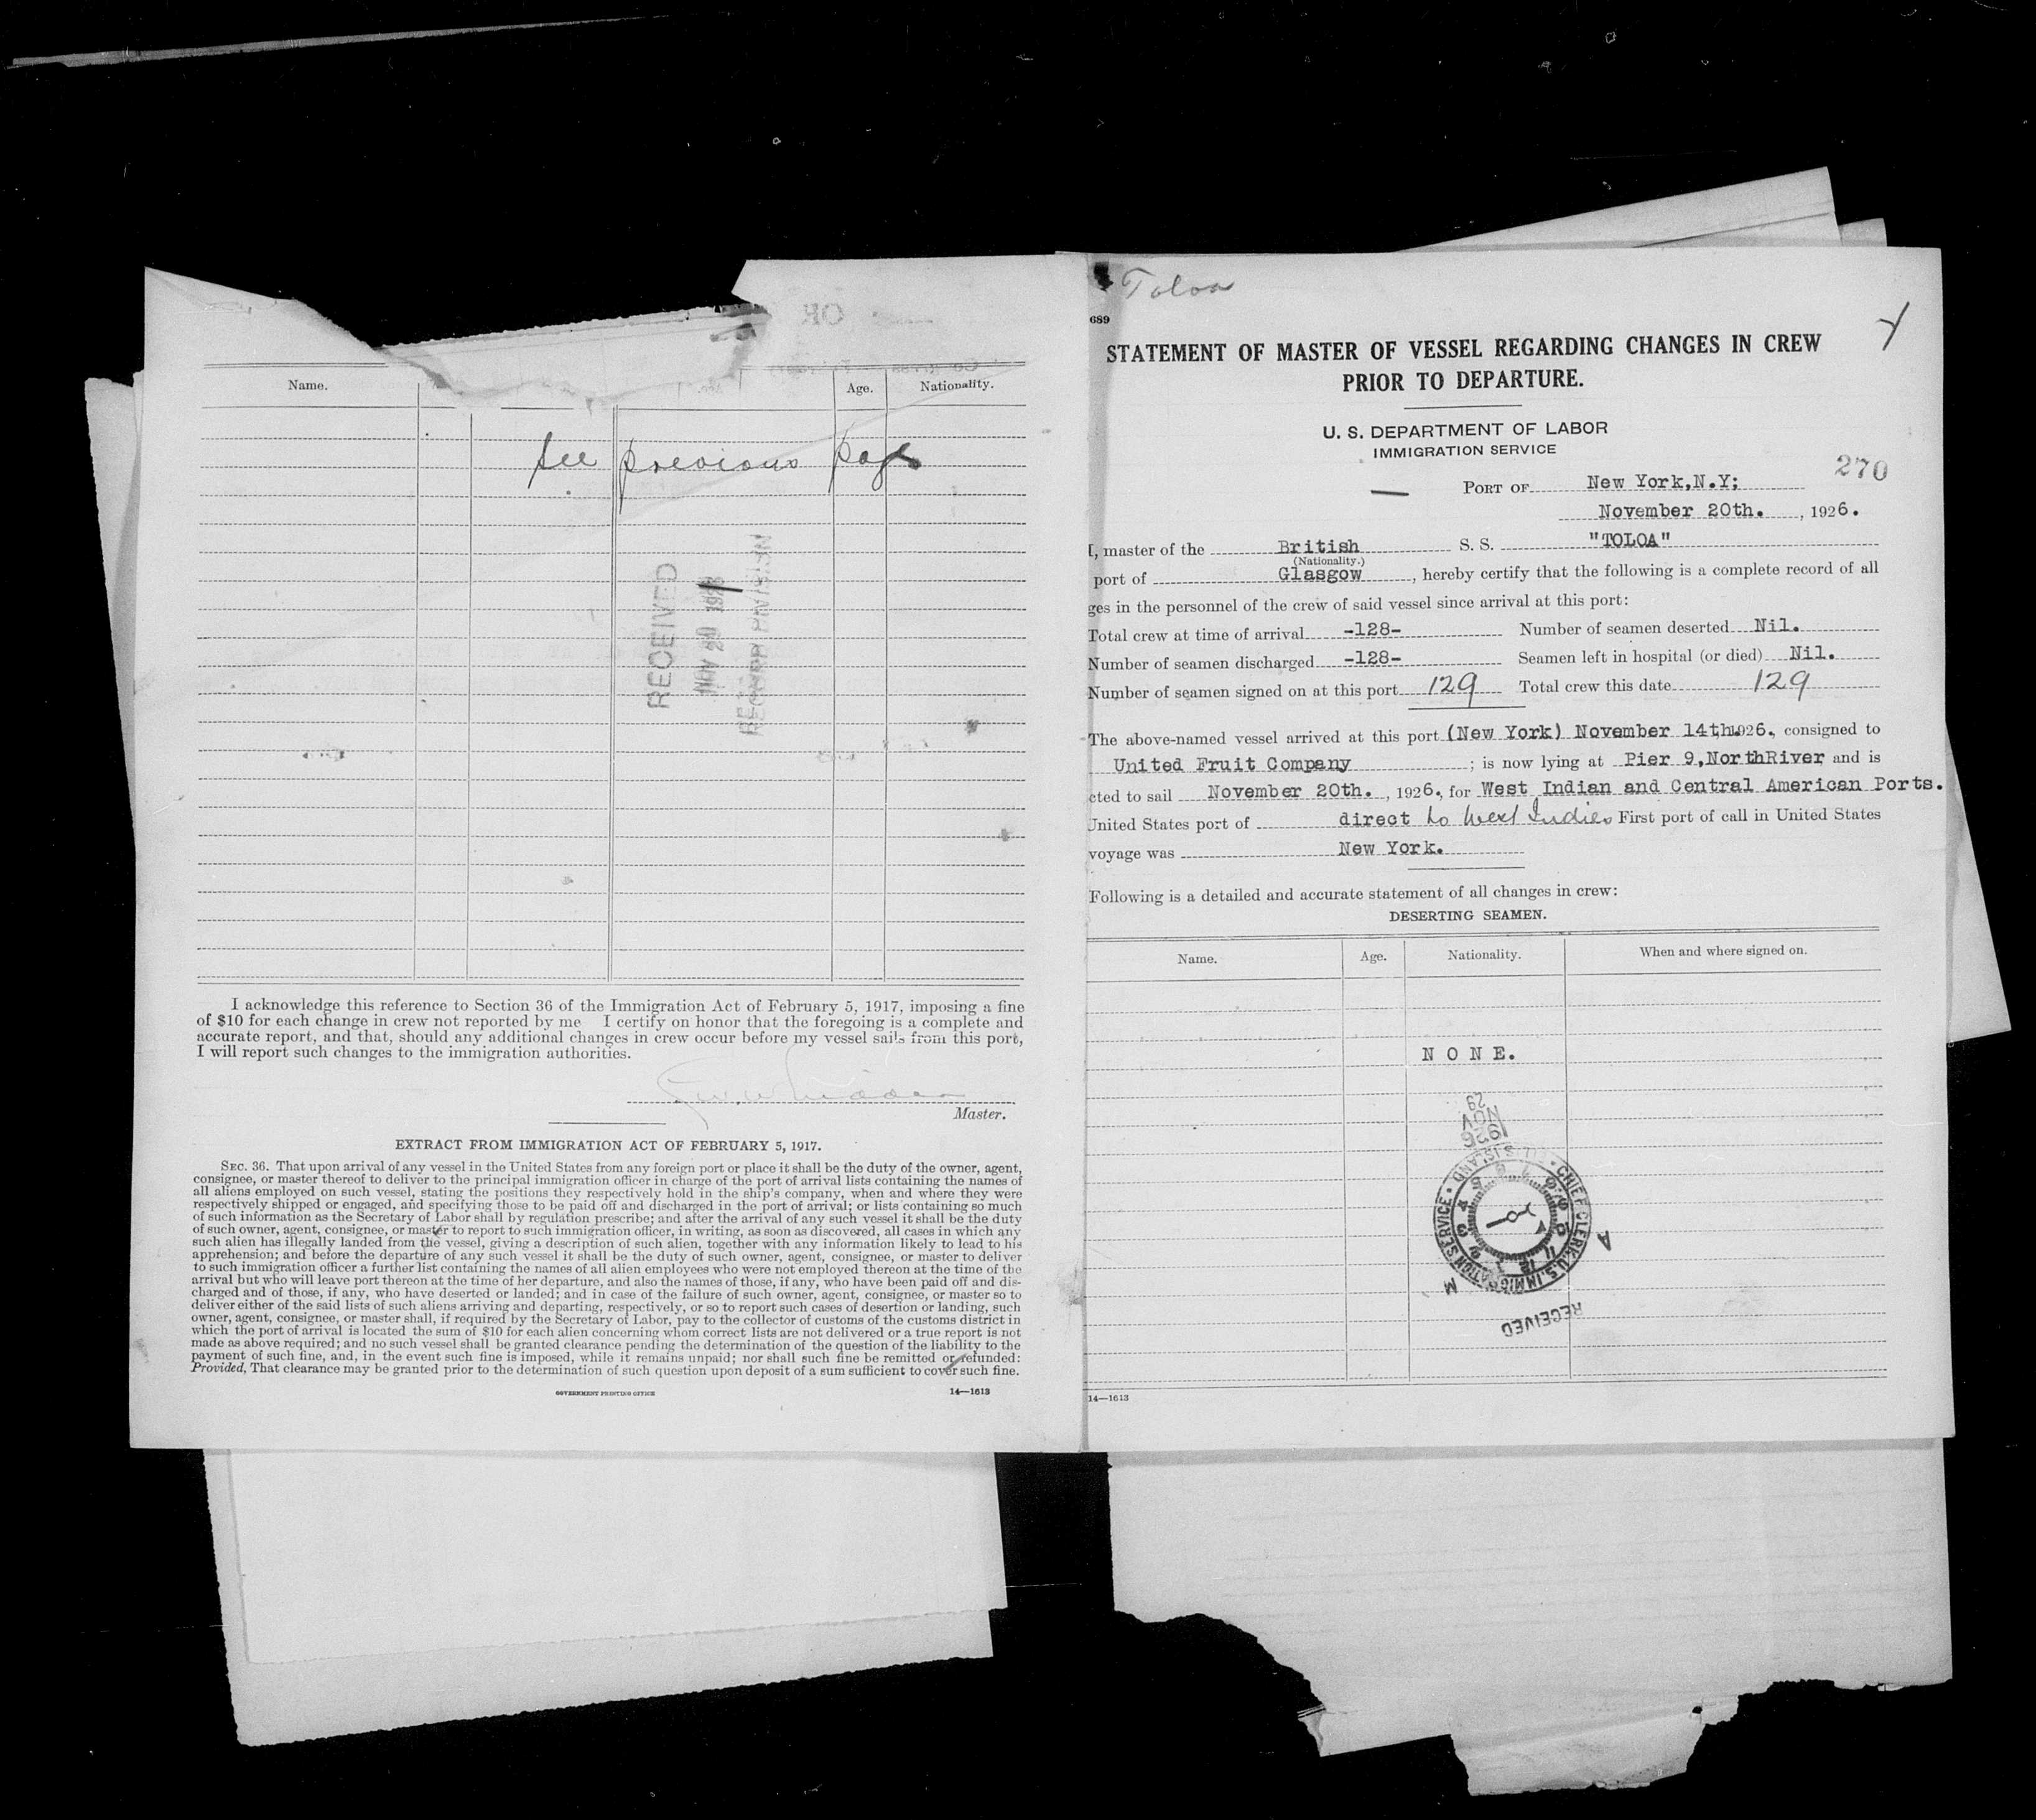 Name.
Age.
Nationality.
See previous page
RECEIVED
NOV 20
RECORD DIVISION
I acknowledge this reference to Section 36 of the Immigration Act of February 5, 1917, imposing a fine
of $10 for each change in crew not reported by me I certify on honor that the foregoing is a complete and
accurate report, and that, should any additional changes in crew occur before my vessel sails from this port,
I will report such changes to the immigration authorities.
Master.
EXTRACT FROM IMMIGRATION ACT OF FEBRUARY 5, 1917.
SEC. 36. That upon arrival of any vessel in the United States from any foreign port or place it shall be the duty of the owner, agent,
consignee, or master thereof to deliver to the principal immigration officer in charge of the port of arrival lists containing the names of
all aliens employed on such vessel, stating the positions they respectively hold in the ship's company, when and where they were
respectively shipped or engaged, and specifying those to be paid off and discharged in the port of arrival; or lists containing so much
of such information as the Secretary of Labor shall by regulation prescribe; and after the arrival of any such vessel it shall be the duty
of such owner, agent, consignee, or master to report to such immigration officer, in writing, as soon as discovered, all cases in which any
such alien has illegally landed from the vessel, giving a description of such alien, together with any information likely to lead to his
apprehension; and before the departure of any such vessel it shall be the duty of such owner, agent, consignee, or master to deliver
to such immigration officer a further list containing the names of all alien employees who were not employed thereon at the time of the
arrival but who will leave port thereon at the time of her departure, and also the names of those, if any, who have been paid off and dis-
charged and of those, if any, who have deserted or landed; and in case of the failure of such owner, agent, consignee, or master so to
deliver either of the said lists of such aliens arriving and departing, respectively, or so to report such cases of desertion or landing, such
owner, agent, consignee, or master shall, if required by the Secretary of Labor, pay to the collector of customs of the customs district in
which the port of arrival is located the sum of $10 for each alien concerning whom correct lists are not delivered or a true report is not
made as above required; and no such vessel shall be granted clearance pending the determination of the question of the liability to the
payment of such fine, and, in the event such fine is imposed, while it remains unpaid; nor shall such fine be remitted or refunded:
Provided, That clearance may be granted prior to the determination of such question upon deposit of a sum sufficient to cover such fine.
GOVERNMENT PRINTING OFFICE
14—1613
Toloa
689
STATEMENT OF MASTER OF VESSEL REGARDING CHANGES IN CREW
PRIOR TO DEPARTURE.
U. S. DEPARTMENT OF LABOR
IMMIGRATION SERVICE
270
PORT OF New York,N.Y;
November 20th., 1926.
I, master of the British S. S. "TOLOA"
(Nationality.)
port of Glasgow, hereby certify that the following is a complete record of all
ges in the personnel of the crew of said vessel since arrival at this port:
Total crew at time of arrival -128- Number of seamen deserted Nil.
Number of seamen discharged -128- Seamen left in hospital (or died) Nil.
Number of seamen signed on at this port 129 Total crew this date 129
The above-named vessel arrived at this port (New York) November 14th.1926., consigned to
United Fruit Company; is now lying at Pier 9,NorthRiver and is
cted to sail November 20th., 1926., for West Indian and Central American Ports.
United States port of direct to West Indies First port of call in United States
voyage was New York.
Following is a detailed and accurate statement of all changes in crew:
DESERTING SEAMEN.
Name. Age. Nationality. When and where signed on.
NONE.
1926
NOV
29
CHIEF CLERK, U.S. IMMIGRATION SERVICE • ELLIS ISLAND
A M
RECEIVED
14—1613